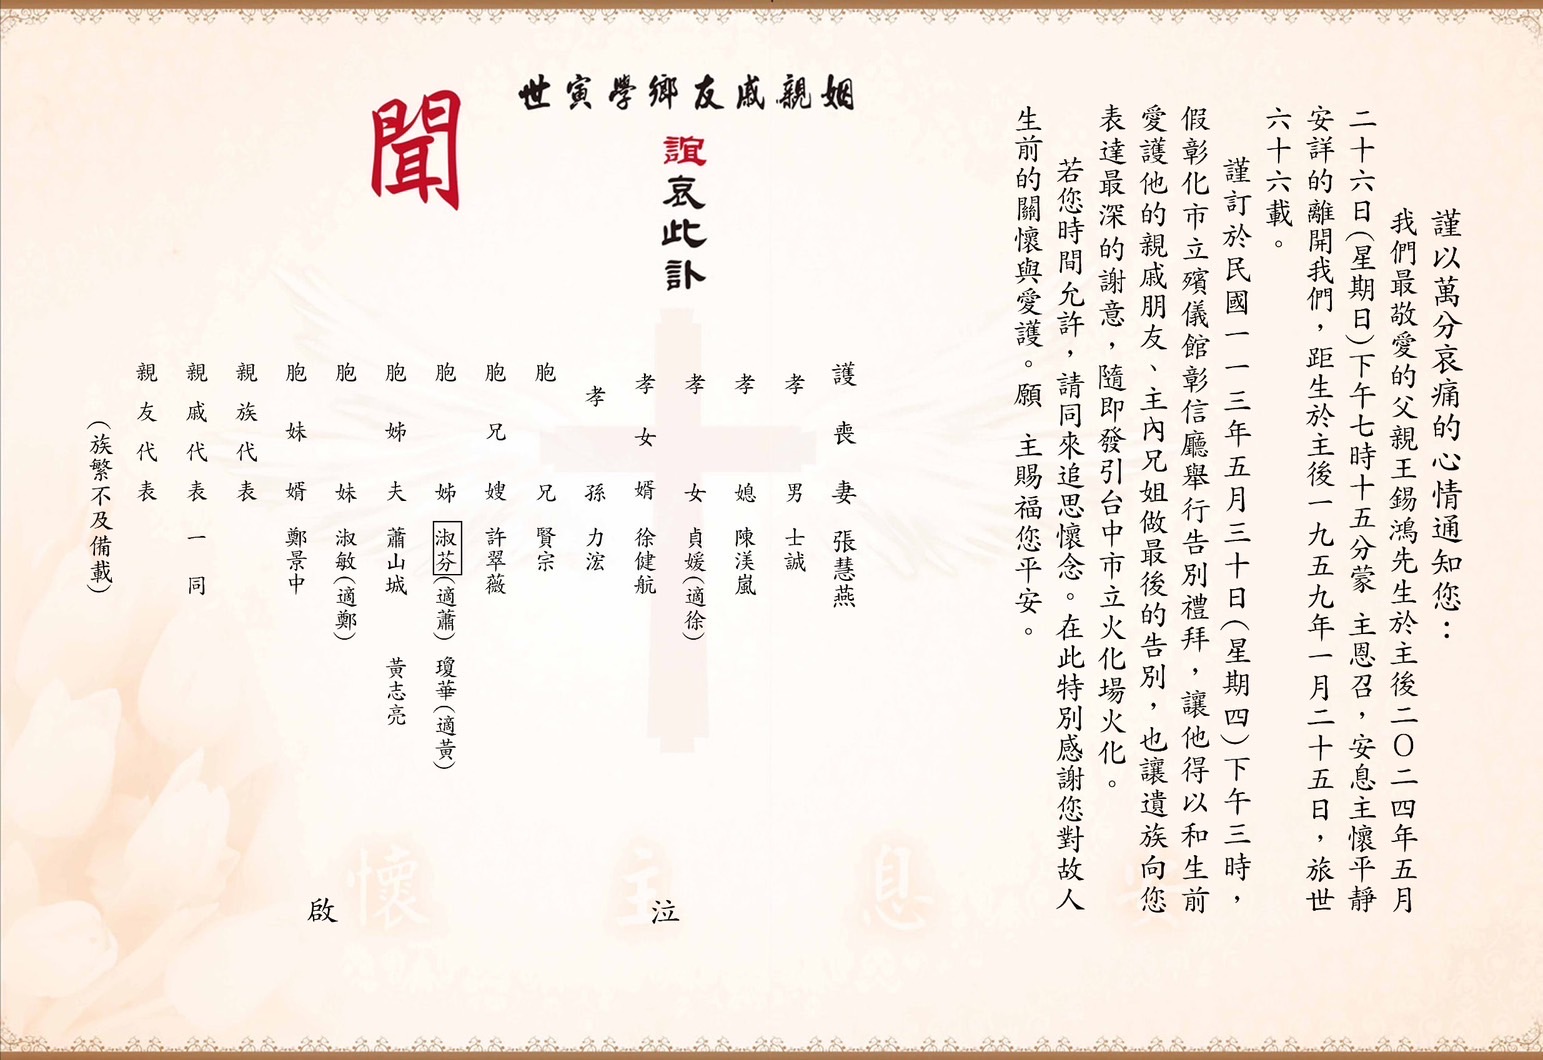 謹以萬分哀痛的心情通知您：
我們最敬愛的父親王錫鴻先生於主後二〇二四年五月
二十六日(星期日)下午七時十五分蒙　主恩召，安息主懷平靜
安詳的離開我們，距生於主後一九五九年一月二十五日，旅世
六十六載。
謹訂於民國一一三年五月三十日(星期四)下午三時，
假彰化市立殯儀館彰信廳舉行告別禮拜，讓他得以和生前
愛護他的親戚朋友、主內兄姐做最後的告別，也讓遺族向您
表達最深的謝意，隨即發引台中市立火化場火化。
若您時間允許，請同來追思懷念。在此特別感謝您對故人
生前的關懷與愛護。願　主賜福您平安。
姻親戚友鄉學寅世
誼哀此訃
聞
護喪妻 張慧燕
孝男 士誠
孝媳 陳渼嵐
孝女 貞媛(適徐)
孝女婿 徐健航
孝孫 力浤
胞兄 賢宗
胞兄嫂 許翠薇
胞姊 淑芬(適蕭) 瓊華(適黃)
胞姊夫 蕭山城 黃志亮
胞妹 淑敏(適鄭)
胞妹婿 鄭景中
親族代表
親戚代表一同
親友代表
(族繁不及備載)
泣
啟
安息主懷